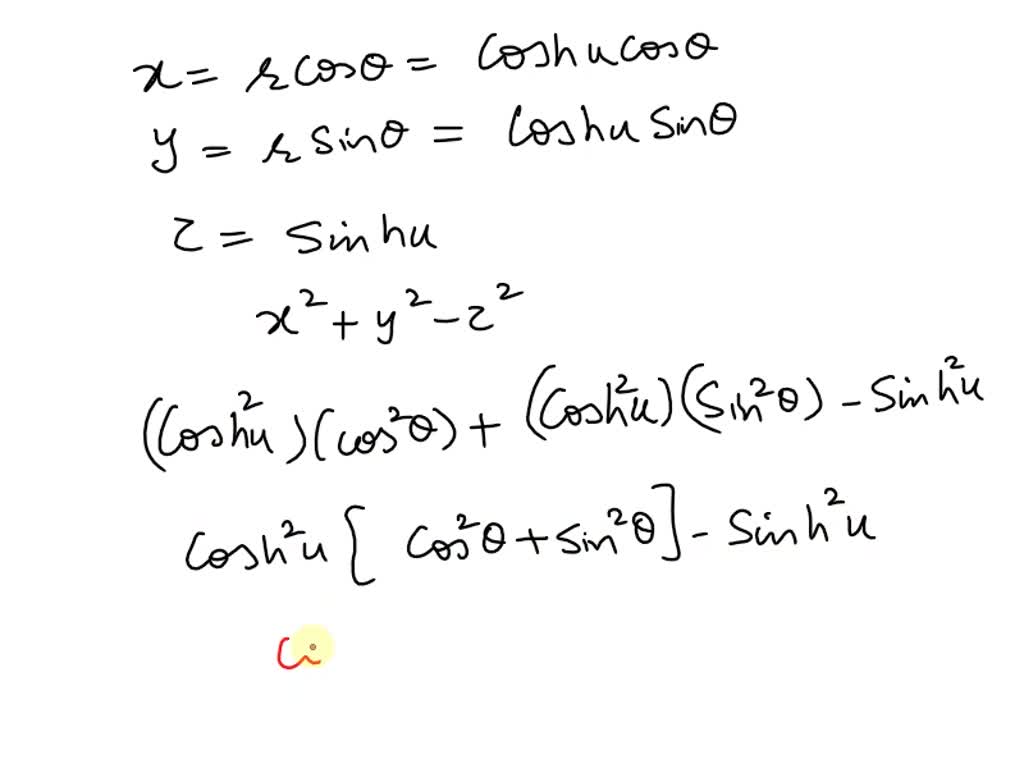 x = r cosθ = coshu cosθ
y = r sinθ = coshu sinθ
z = sinhu
x² + y² - z²
(cosh²u)(cos²θ) + (cosh²u)(sin²θ) - sinh²u
cosh²u [ cos²θ + sin²θ ] - sinh²u